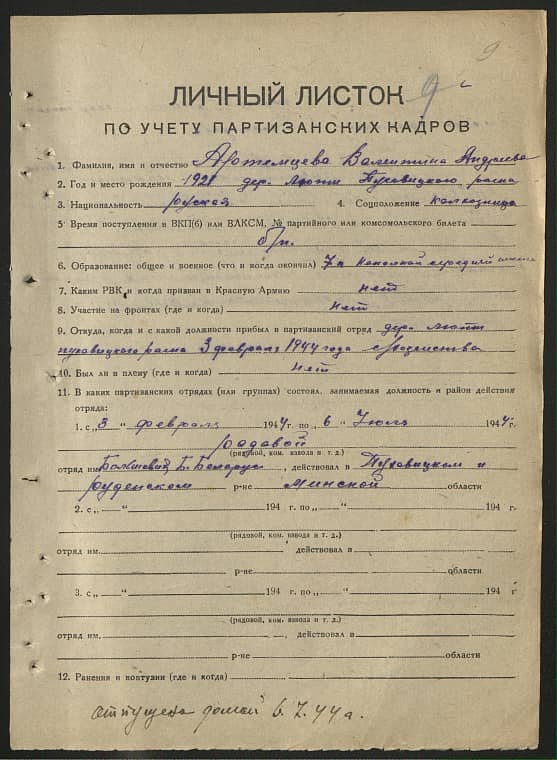 9
9
ЛИЧНЫЙ ЛИСТОК
ПО УЧЕТУ ПАРТИЗАНСКИХ КАДРОВ
1. Фамилия, имя и отчество Артемцева Валентина Андреевна
2. Год и место рождения 1921 дер. Пуховицкого раена
3. Национальность руская 4. Соцположение колхозница
5. Время поступления в ВКП(б) или ВЛКСМ, № партийного или комсомольского билета
б/п.
6. Образование: общее и военное (что и когда окончил) 7 кл неполной середней школы
7. Каким РВК и когда призван в Красную Армию нет
8. Участие на фронтах (где и когда) нет
9. Откуда, когда и с какой должности прибыл в партизанский отряд дер.
пуховицкого раена 3 февраля 1944 года
10. Был ли в плену (где и когда) нет
11. В каких партизанских отрядах (или группах) состоял, занимаемая должность и район действия
отряда:
1. с „3“ февраля 1944 г. по „6“ Июль 1944 г.
рядовой
(рядовой, ком. взвода и т. д.)
отряд им. Б. Беларусь, действовал в Пуховицком и
Руденском р-не Минской области
2. с „ “ 194 г. по „ “ 194 г.
(рядовой, ком. взвода и т. д.)
отряд им. действовал в
р-не области
3. с „ “ 194 г. по „ “ 194 г
(рядовой, ком. взвода и т. д.)
отряд им. , действовал в
р-не области
12. Ранения и контузии (где и когда)
отпущена домой 6.7.44 г.